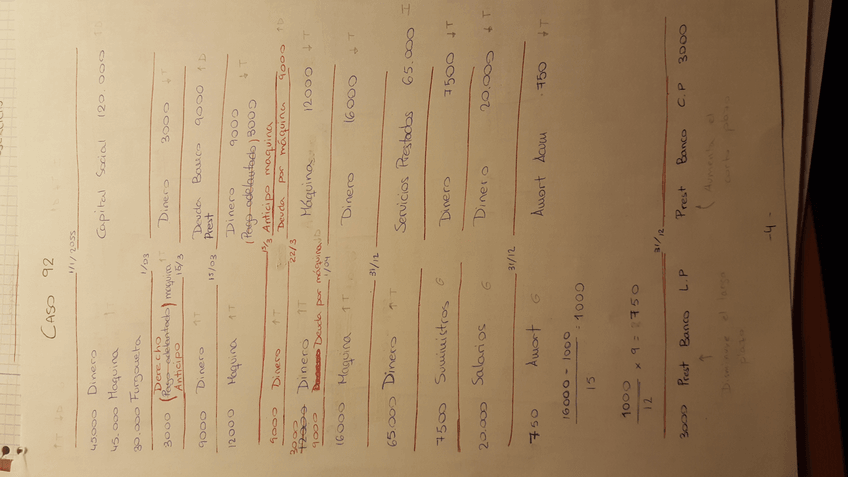 CASO 92
1/1/2055
45000 Dinero
45.000 Maquina
30.000 Furgoneta
Capital Social 120.000 ↑D
1/03
3000 (Pago adelantado) maquina ↑T
Derecho
Anticipo
Dinero 3000 ↓T
15/3
9000 Dinero ↑T
Deuda Banco 9000 ↑D
Prest
15/03
12000 Maquina ↑T
Dinero 9000 ↓T
(Pago adelantado) 3000
15/3
9000 Dinero ↑T
Anticipo maquina
Deuda por máquina 9000 ↑D
22/3
3000
12000 Dinero ↑T
9000 Deuda por máquina
Máquinas 12000 ↓T
1/04
16000 Maquina ↑T
Dinero 16000 ↓T
31/12
65.000 Dinero ↑T
Servicios Prestados 65.000 I
7500 Suministros G
Dinero 7500 ↓T
20.000 Salarios G
Dinero 20.000 ↓T
31/12
750 Amort G
Amort Acum 750 ↓T
16000 - 1000
15
= 1000
1000
12
x 9 = 750
31/12
3000 Prest Banco L.P
Prest Banco C.P 3000
Disminuye el largo
plazo
Aumenta el
-4-